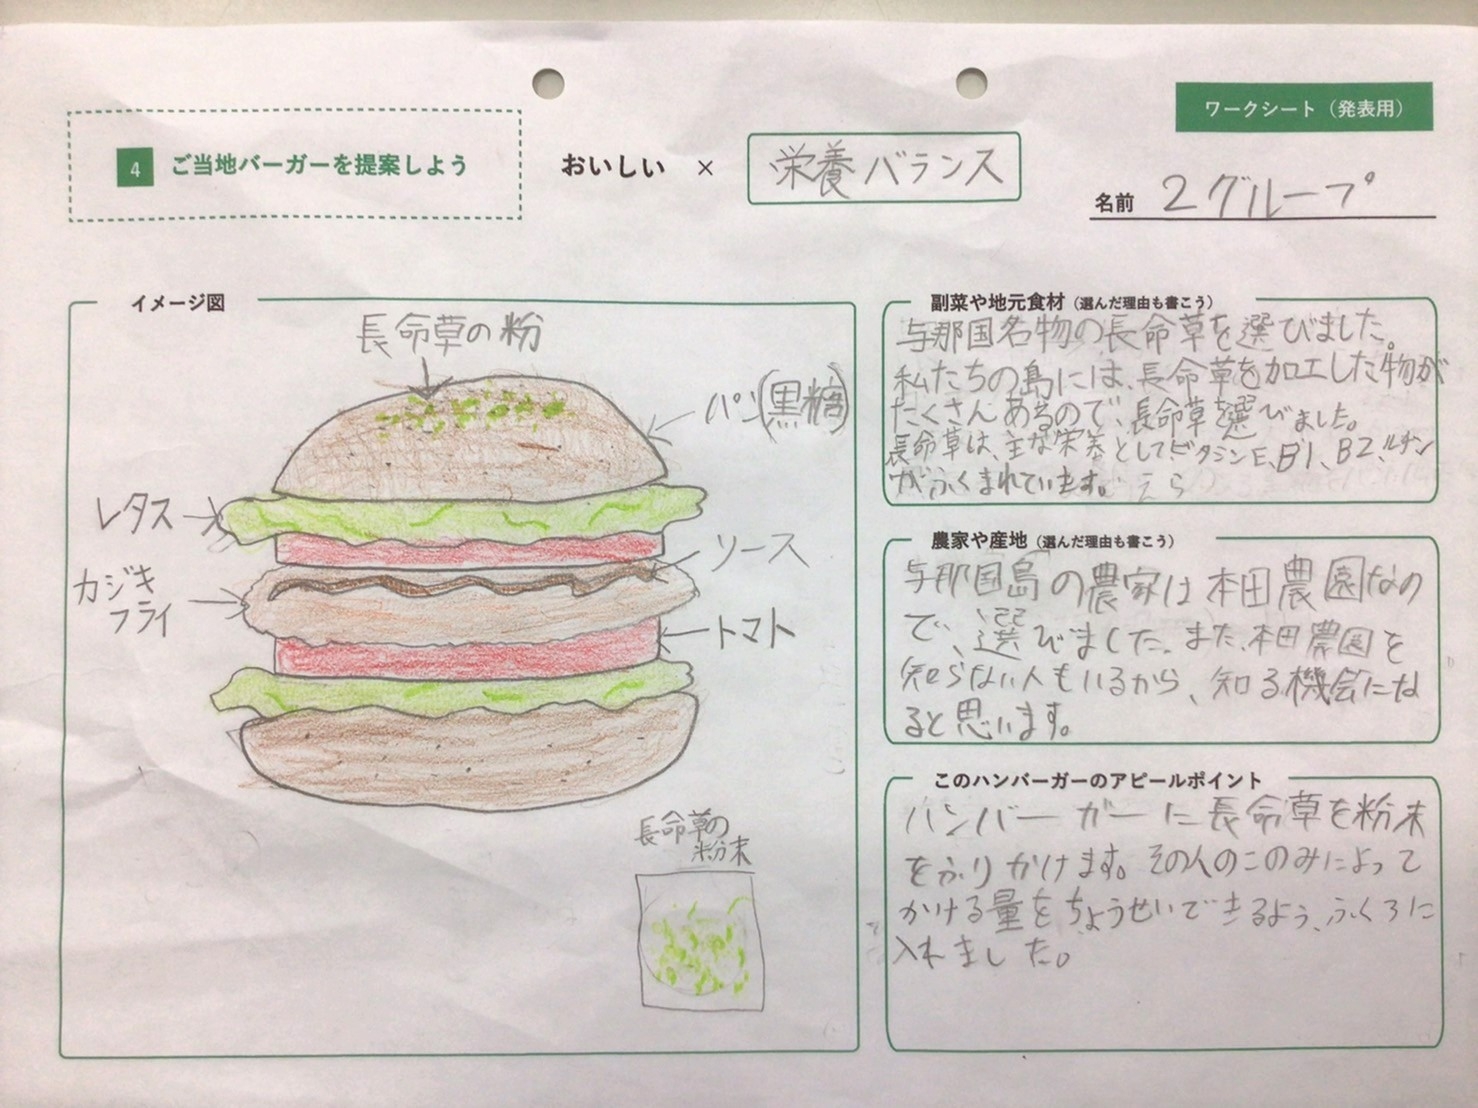 ワークシート（発表用）
4 ご当地バーガーを提案しよう
おいしい × 栄養バランス
名前 2グループ
イメージ図
長命草の粉
パン(黒糖)
レタス
ソース
カジキ
フライ
トマト
長命草の
粉末
副菜や地元食材（選んだ理由も書こう）
与那国名物の長命草を選びました。
私たちの島には、長命草を加工した物が
たくさんあるので、長命草を選びました。
長命草は、主な栄養としてビタミンE、B1、B2、ルチン
がふくまれています。
農家や産地（選んだ理由も書こう）
与那国島の農家は本田農園なの
で、選びました。また、本田農園を
知らない人もいるから、知る機会にな
ると思います。
このハンバーガーのアピールポイント
ハンバーガーに長命草を粉末
をふりかけます。その人のこのみによって
かける量をちょうせいできるよう、ふくろに
入れました。